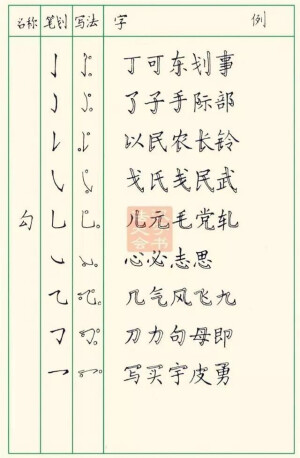 名称 笔划 写法 字 例
丁可东划事
了子手际部
以民农长铃
戈氏戋民武
勾 儿元毛党轧
心必志思
几气风飞九
刀力句母即
写买宇皮勇